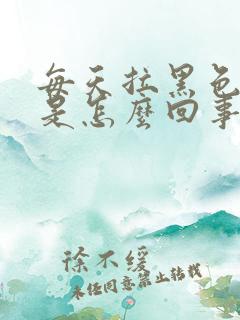 每天拉黑色
是怎麼回事
徐不缓
未经同意禁止转载